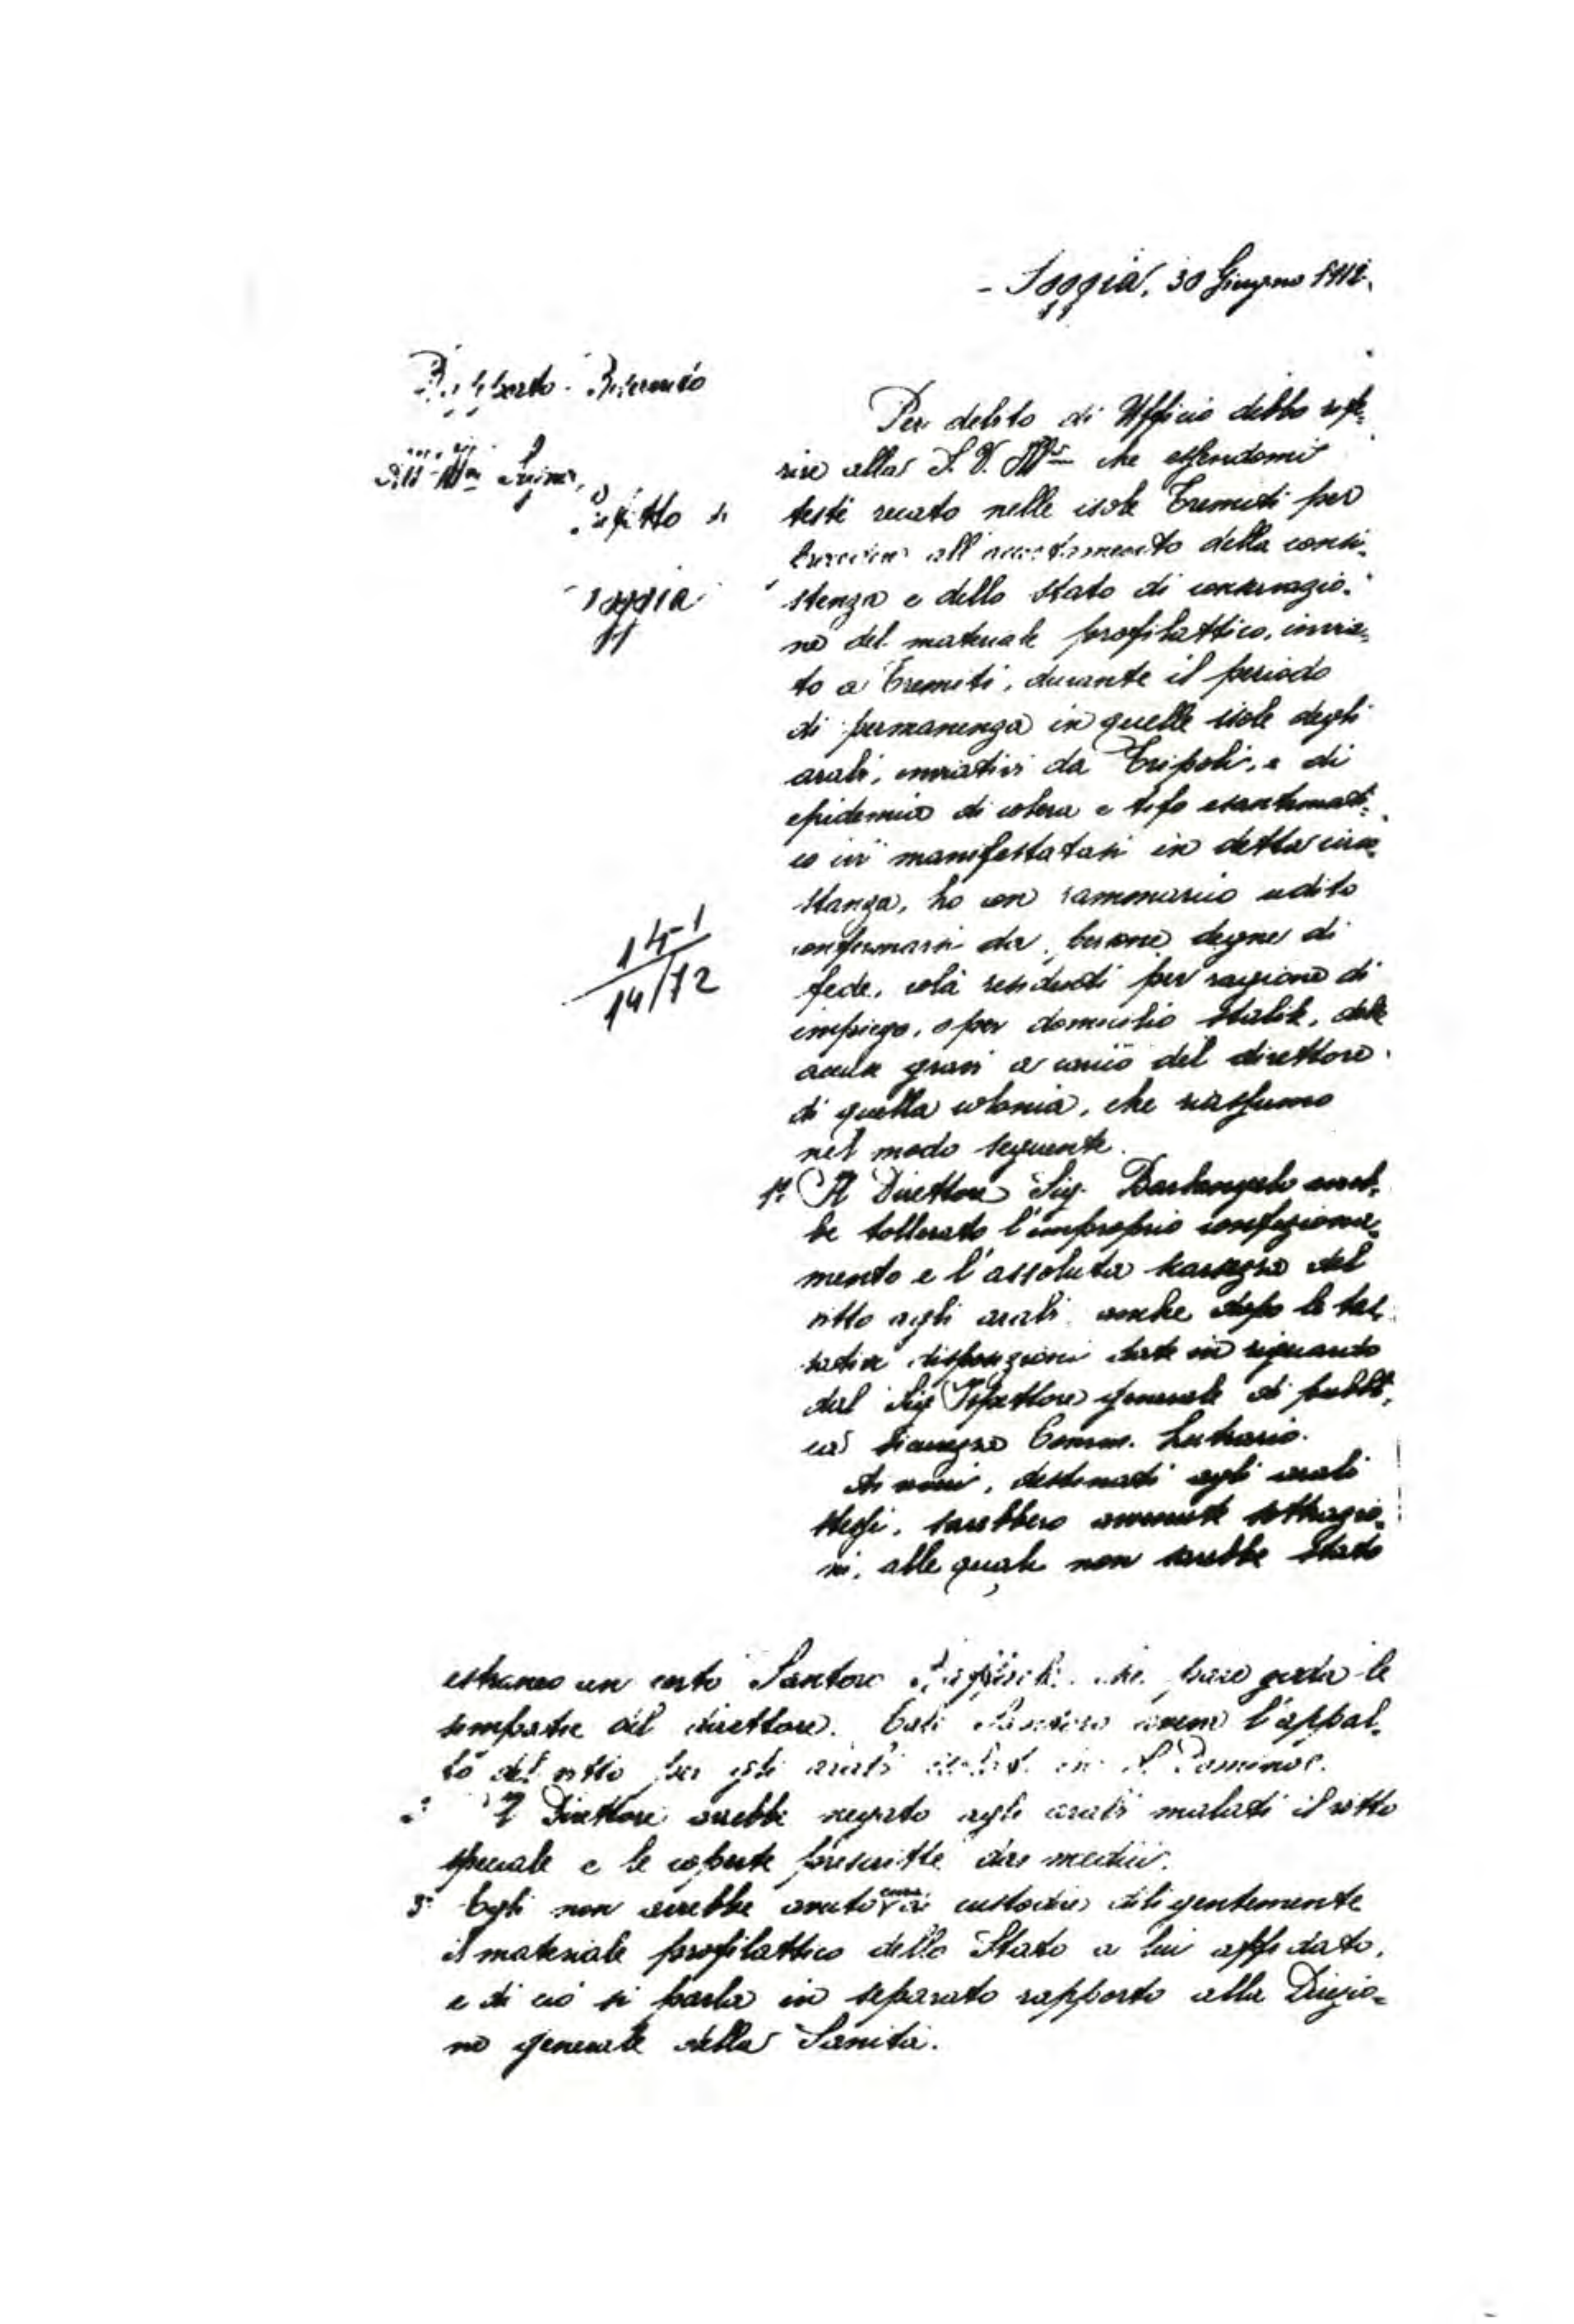 - Foggia, 30 Giugno 1912.
Rapporto - Riservato
Ill-mo Signor
Prefetto di
Foggia
Per debito di Ufficio debbo rife=
rire alla S. V. Ill.ma che essendomi
testé recato nelle isole Tremiti per
all'accertamento della consi=
stenza e dello stato di conservazio=
ne del materiale profilattico, invia=
to a Tremiti, durante il periodo
di permanenza in quelle isole degli
arabi, inviativi da Tripoli, e di
epidemia di colera e tifo esantemati=
co ivi manifestatasi in detta circo=
stanza, ho con rammarico udito
confermarsi da persone degne di
fede, colà residenti per ragione di
impiego, o per domicilio stabile, delle
accuse gravi a carico del direttore
di quella colonia, che riassumo
nel modo seguente.
1º Il Direttore Sig. Barbangelo avreb=
be tollerato l'improprio confeziona=
mento e l'assoluta scarsezza del
vitto agli arabi anche dopo le tas=
sative disposizioni date in riguardo
dal Sig Ispettore generale di pubbli=
ca Sicurezza Comm. Lutrario.
Ai viveri, destinati agli arabi
stessi, sarebbero avvenute sottrazio=
ni, alle quali non sarebbe stato
141
14/12
estraneo un certo Santoro che pare goda le
simpatie del direttore. Tale Santoro aveva l'appal=
to del vitto per gli arabi isolati in S. Domino.
2º Il Direttore avrebbe negato agli arabi malati il vitto
speciale e le coperte prescritte dai medici.
3º Egli non avrebbe avuto cura di custodire diligentemente
il materiale profilattico dello Stato a lui affidato,
e di ciò si parla in separato rapporto alla Direzio=
ne generale della Sanità.